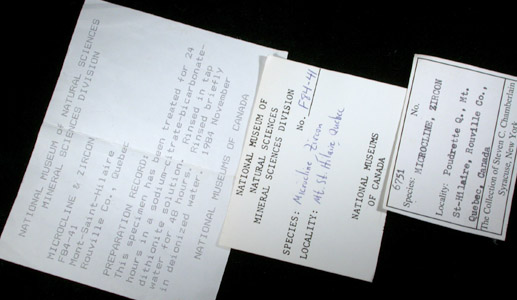 NATIONAL MUSEUM OF NATURAL SCIENCES
MINERAL SCIENCES DIVISION
MICROCLINE & ZIRCON
F84-41
Mont-Saint-Hilaire
Rouville Co., Quebec
PREPARATION RECORD:
This specimen has been treated for 24
hours in a sodium-citrate-bicarbonate-
dithionite solution. Rinsed in tap
water for 48 hours, rinsed briefly
in deionized water. 1984 November
NATIONAL MUSEUMS OF CANADA
NATIONAL MUSEUM OF
NATURAL SCIENCES
MINERAL SCIENCES DIVISION
No. F84-41
SPECIES: Microcline, Zircon
LOCALITY: Mt. St. Hilaire, Quebec
NATIONAL MUSEUMS
OF CANADA
No.
6751
Species: MICROCLINE, ZIRCON
Locality: Poudrette Q., Mt.
St-Hilaire, Rouville Co.,
Quebec, Canada
The Collection of Steven C. Chamberlain
Syracuse, New York